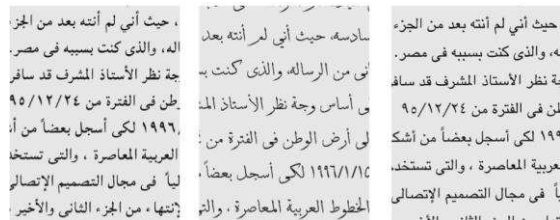 ، حيث أني لم أنته بعد من الجزء
اله، والذى كنت بسببه فى مصر.
جة نظر الأستاذ المشرف قد سافر
وطن فى الفترة من ٩٥/١٢/٢٤
١٩٩٦ لكى أسجل بعضاً من
العربية المعاصرة ، والتى تستخد
لياً فى مجال التصميم الإتصالى
إنتهاء من الجزء الثانى والأخير
سادسه، حيث أنى لم أنته بعد
انى من الرساله، والذى كنت
ى أساس وجة نظر الأستاذ
لى أرض الوطن فى الفترة من
١٩٩٦/١/١٥ لكى أسجل بعضاً
الخطوط العربية المعاصرة ، والتى
حيث أني لم أنته بعد من الجزء
ه، والذى كنت بسببه فى مصر.
ة نظر الأستاذ المشرف قد سافر
لن فى الفترة من ٩٥/١٢/٢٤
لكى أسجل بعضاً من
لعربية المعاصرة ، والتى تستخد
اً فى مجال التصميم الإتصالى